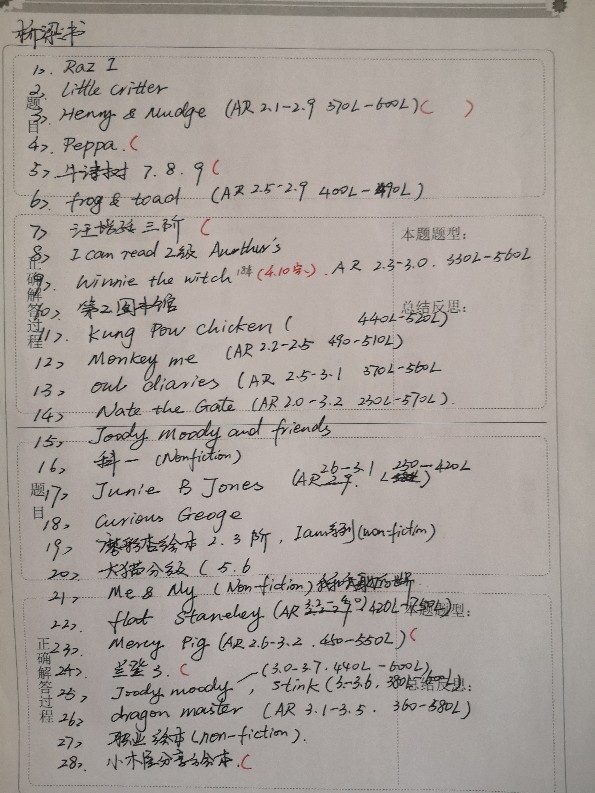 桥梁书
1> Raz I
2> Little critter
3> Henny & Mudge (AR 2.1-2.9 370L-600L)( )
题目
4> Peppa. (
5> 牛津树 7.8.9 (
6> frog & toad (AR 2.5-2.9 400L-490L)
7> 汪培珽 三阶 (
本题题型:
8> I can read 2级 Aurthur's
9> Winnie the witch (4.10 ). AR 2.3-3.0. 330L-560L
正确解答过程
10> 第2图书馆
总结反思:
11> Kung Pow chicken ( 440L-520L)
12> Monkey me (AR 2.2-2.5 490-510L)
13> owl diaries (AR 2.5-3.1 370L-560L
14> Nate the Gate (AR 2.0-3.2 230L-570L).
15> Joody moody and friends
16> 科一 (Nonfiction)
17> Junie B Jones (AR 2.6-3.1 250-420L)
题目
18> Curious Geoge
19> 2.3阶, I am系列(non-fiction)
20> 大猫分级 ( 5.6
21> Me & My (Non-fiction)
22> flat Staneley (AR 420L-
本题题型:
23> Mercy Pig (AR 2.6-3.2. 450-550L)(
正确解答过程
24> 兰登3. (
25> Joody moody (3.0-3.7, 440L-600L), stink (3-3.6, 380L-
总结反思:
26> dragon master (AR 3.1-3.5. 360-580L)
27> 职业绘本(non-fiction).
28> 小木屋分享绘本. (